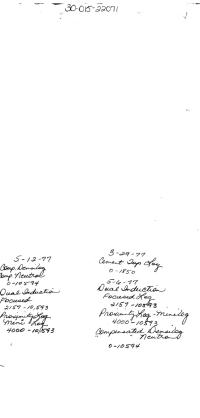 30-015-22071
5-12-77
Comp. Densilog
Comp Neutron
0-10594
Dual Induction
Focused
2157-10,593
Proximity Log
Mini Log
4000-10,593
3-29-77
Cement Top Log
0-1850
5-6-77
Dual Induction
Focused Log
2157-10593
Proximity Log-Minilog
4000-10593
Compensated Densilog
Neutron
0-10594